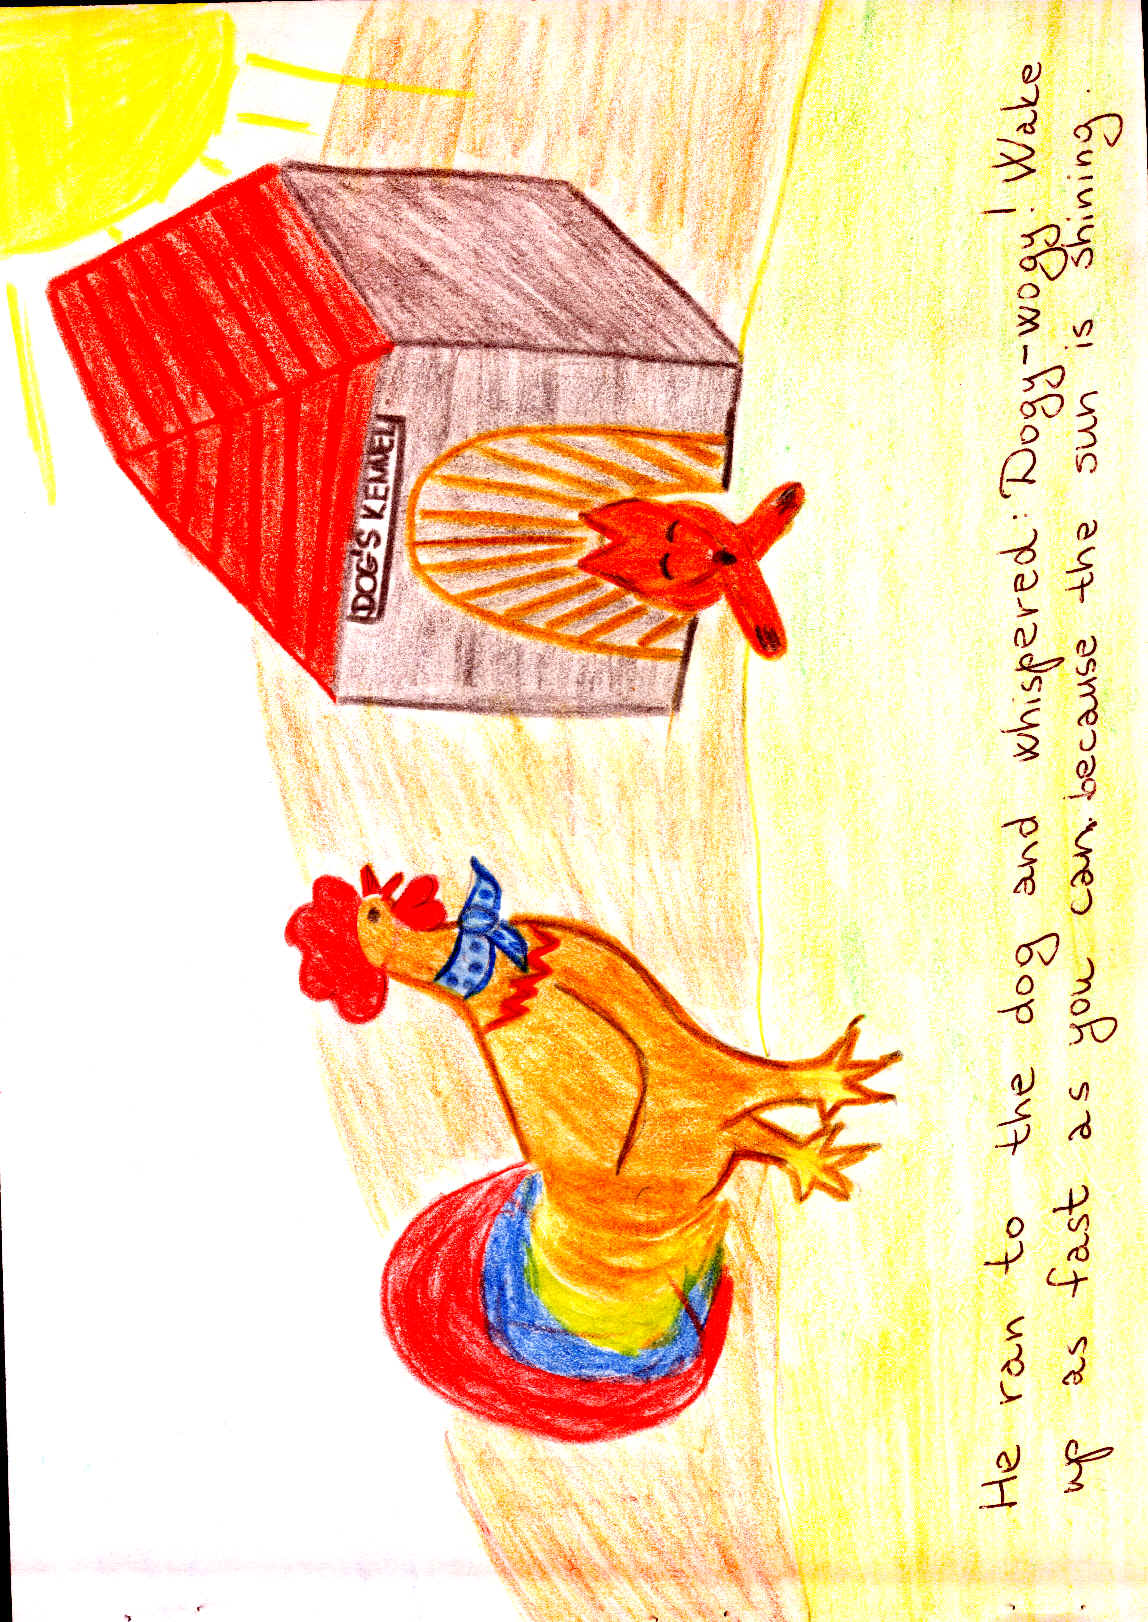 DOG'S KENNEL
He ran to the dog and whispered: Dogy-wogy! Wake
up as fast as you can because the sun is shining.